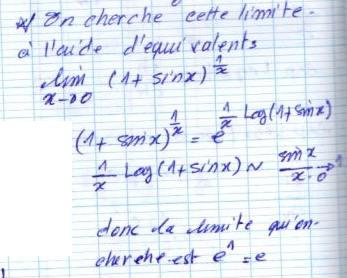 On cherche cette limite.
à l'aide d'équivalents
lim (1+ sinx)^(1/x)
x→0
(1+ sinx)^(1/x) = e^(1/x Log(1+sinx))
1/x Log(1+sinx) ~ sinx/x →0 1
donc la limite qu'on
cherche est e^1 = e